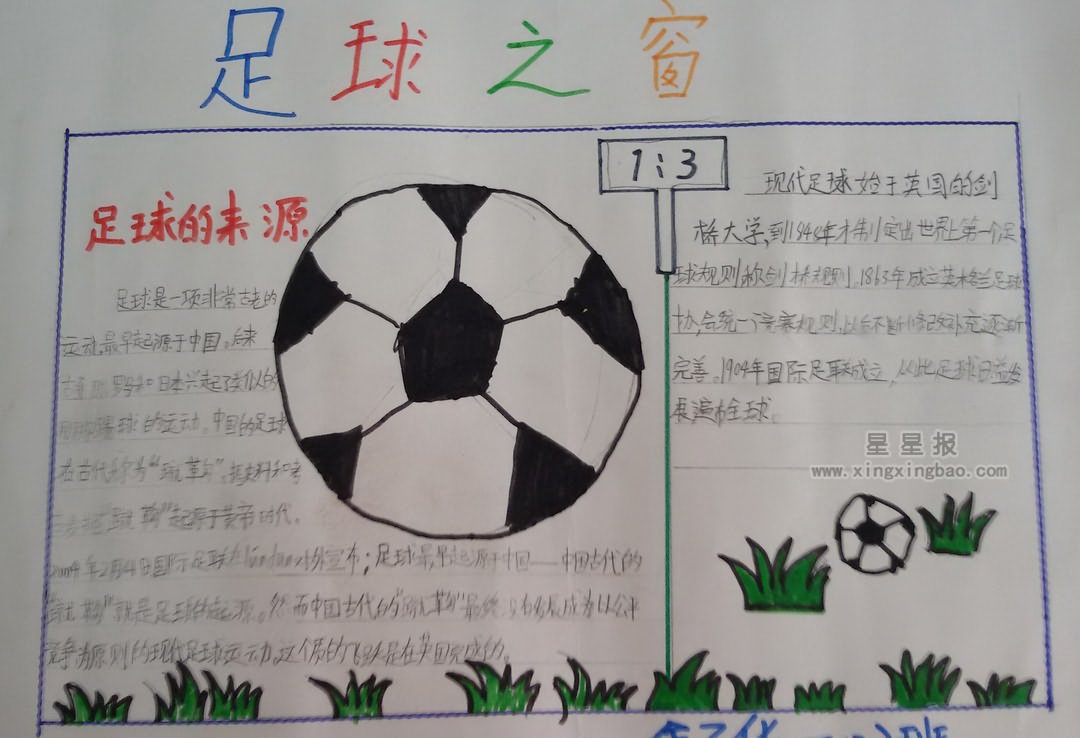 足球之窗
1:3
足球的来源
足球是一项非常古老的
运动,最早起源于中国。后来
日本兴起了类似的
球的运动。中国的足球
在古代称为"蹴鞠",据史料和考
起源于黄帝时代。
2004年2月4日国际足联在London对外宣布;足球最早起源于中国——中国古代的
就是足球的起源。然而中国古代的最终没有发展成为以公平
竞争为原则的现代足球运动,这个质的飞跃是在英国完成的。
现代足球始于英国的剑
桥大学,到1848年才制定出世界上第一个足
球规则称剑桥规则。1863年成立英格兰足球
协会统一了竞赛规则,以后不断修改补充逐渐
完善。1904年国际足联成立,从此足球日益发
展遍布全球。
星星报
www.xingxingbao.com
班